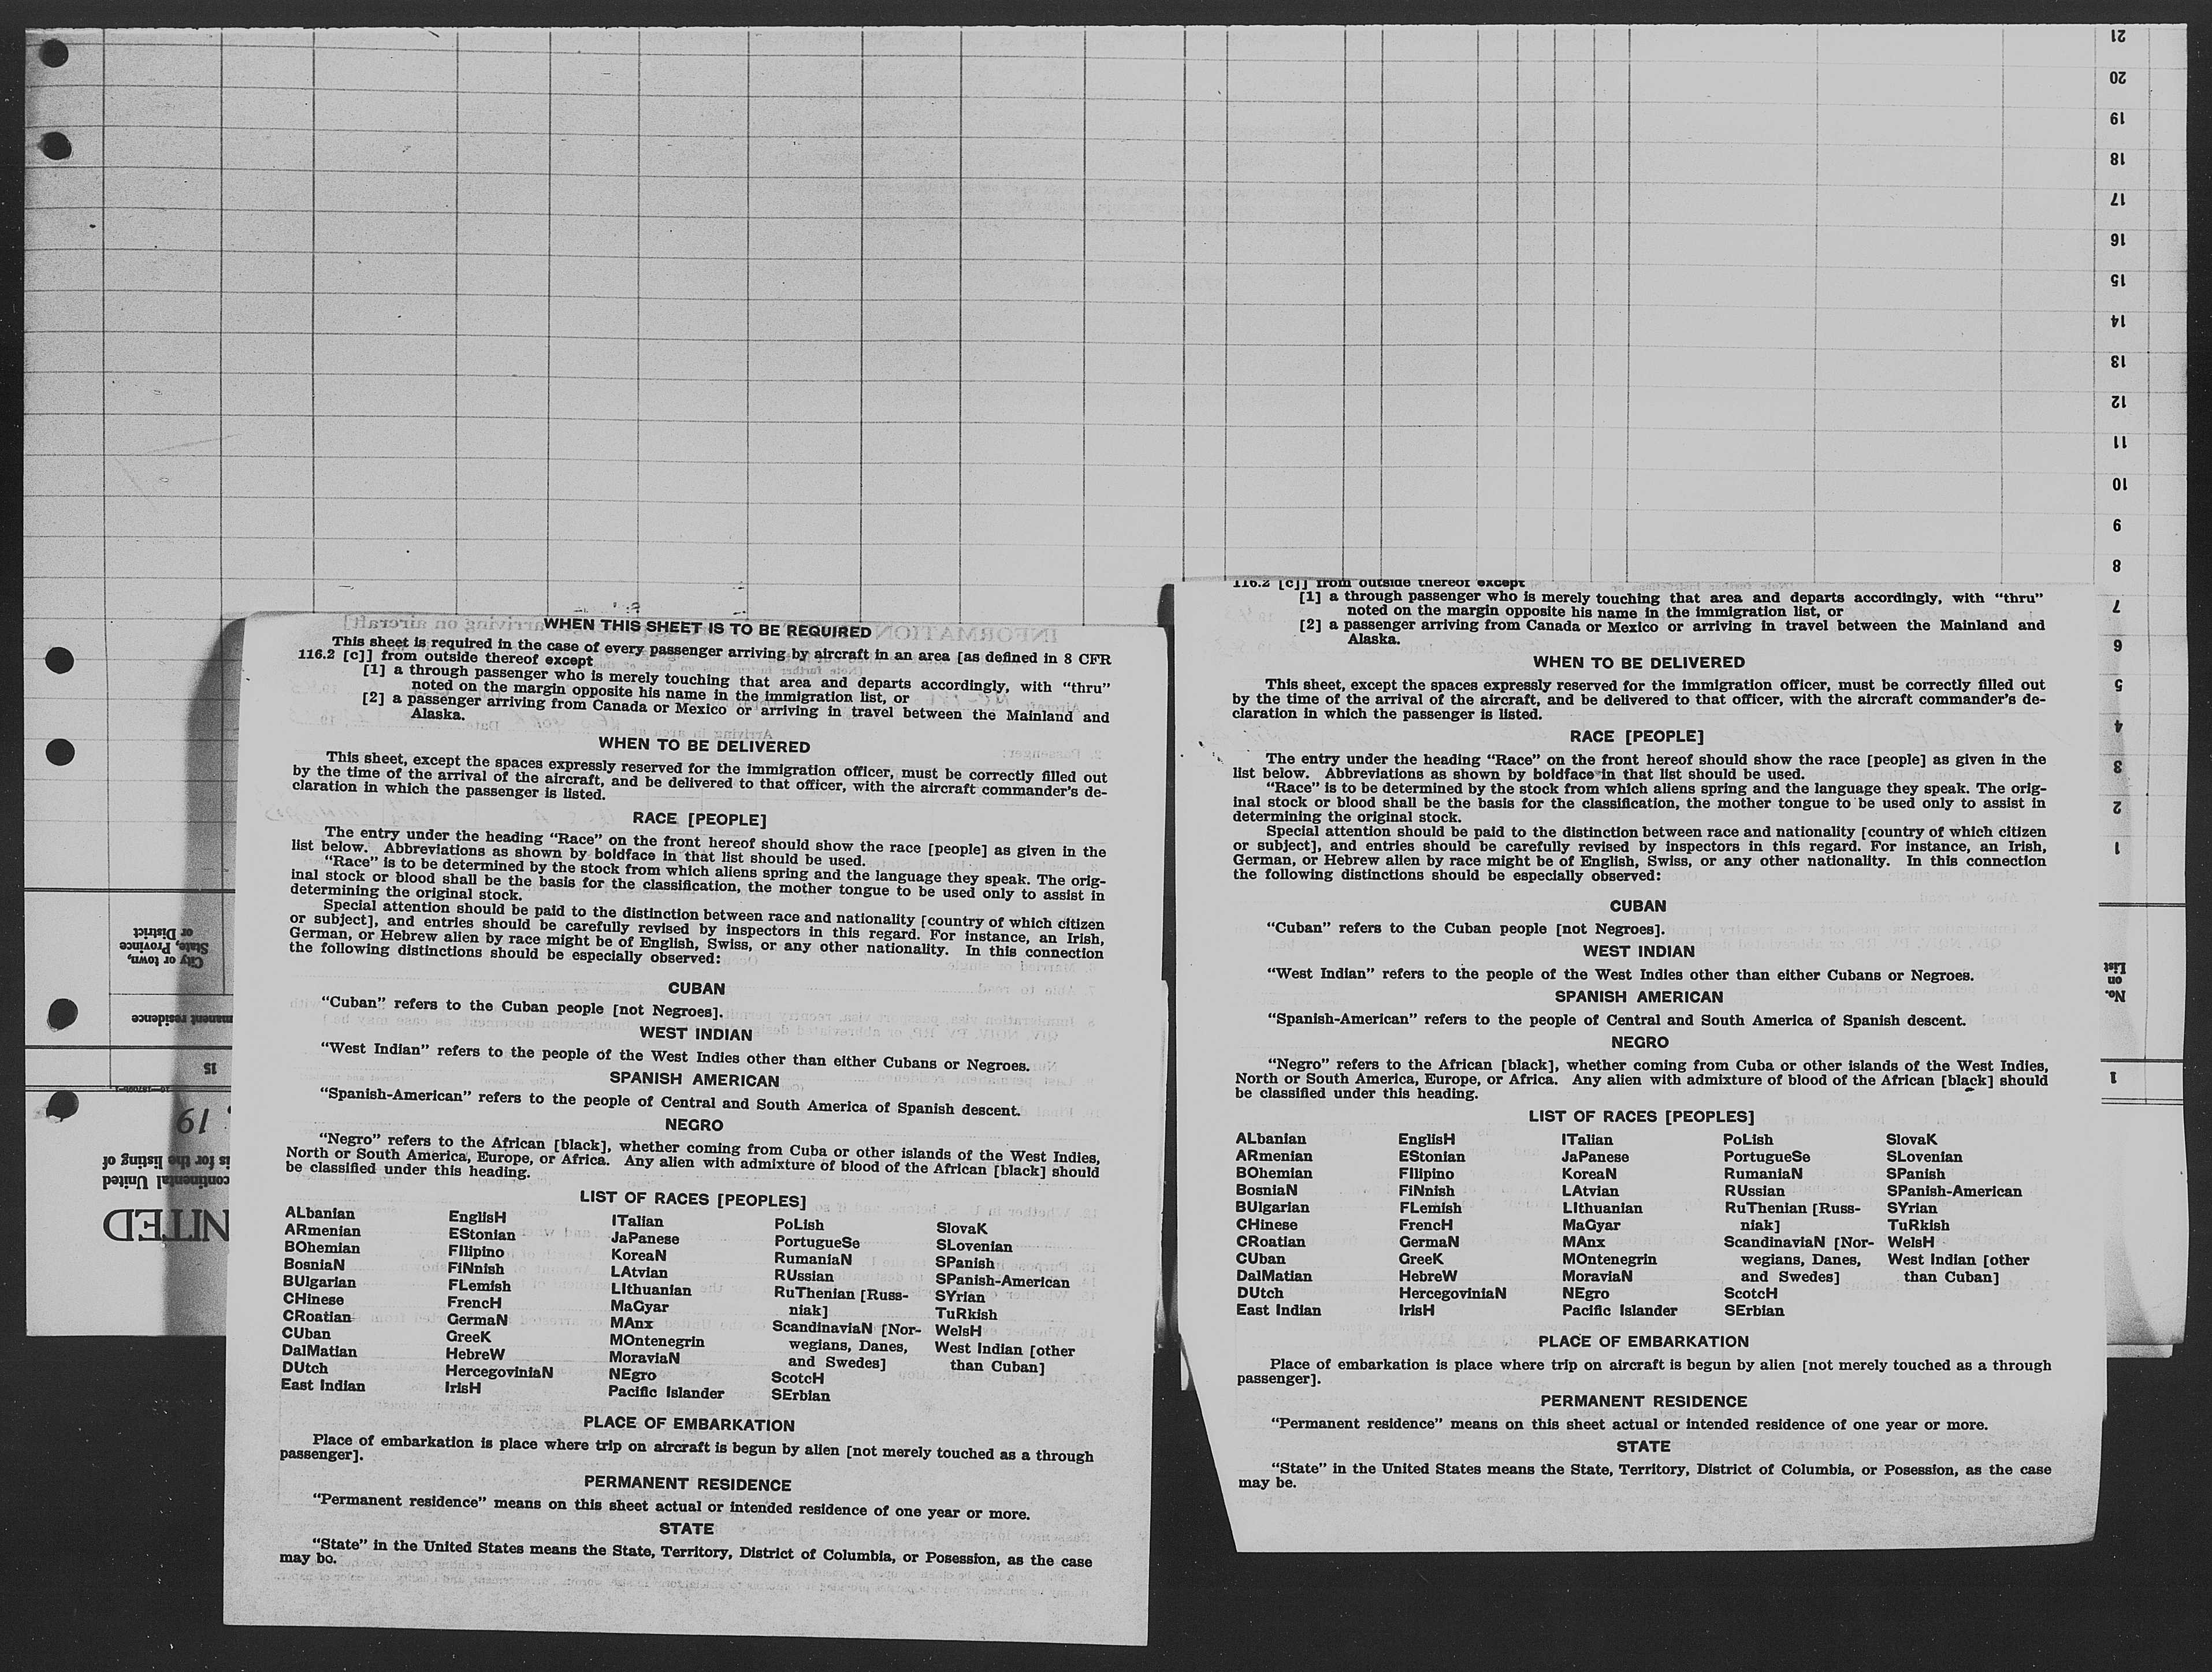 21
20
19
18
17
16
15
14
13
12
11
10
9
8
7
6
5
4
3
2
1
No.
on
List
1
City or town,
State, Province
or District
15
19
NITED
WHEN THIS SHEET IS TO BE REQUIRED
This sheet is required in the case of every passenger arriving by aircraft in an area [as defined in 8 CFR
116.2 [c]] from outside thereof except
[1] a through passenger who is merely touching that area and departs accordingly, with “thru”
noted on the margin opposite his name in the immigration list, or
[2] a passenger arriving from Canada or Mexico or arriving in travel between the Mainland and
Alaska.
WHEN TO BE DELIVERED
This sheet, except the spaces expressly reserved for the immigration officer, must be correctly filled out
by the time of the arrival of the aircraft, and be delivered to that officer, with the aircraft commander’s de-
claration in which the passenger is listed.
RACE [PEOPLE]
The entry under the heading “Race” on the front hereof should show the race [people] as given in the
list below. Abbreviations as shown by boldface in that list should be used.
“Race” is to be determined by the stock from which aliens spring and the language they speak. The orig-
inal stock or blood shall be the basis for the classification, the mother tongue to be used only to assist in
determining the original stock.
Special attention should be paid to the distinction between race and nationality [country of which citizen
or subject], and entries should be carefully revised by inspectors in this regard. For instance, an Irish,
German, or Hebrew alien by race might be of English, Swiss, or any other nationality. In this connection
the following distinctions should be especially observed:
CUBAN
“Cuban” refers to the Cuban people [not Negroes].
WEST INDIAN
“West Indian” refers to the people of the West Indies other than either Cubans or Negroes.
SPANISH AMERICAN
“Spanish-American” refers to the people of Central and South America of Spanish descent.
NEGRO
“Negro” refers to the African [black], whether coming from Cuba or other islands of the West Indies,
North or South America, Europe, or Africa. Any alien with admixture of blood of the African [black] should
be classified under this heading.
LIST OF RACES [PEOPLES]
ALbanian
ARmenian
BOhemian
BosniaN
BUlgarian
CHinese
CRoatian
CUban
DalMatian
DUtch
East Indian
EnglisH
EStonian
FIlipino
FiNnish
FLemish
FrencH
GermaN
GreeK
HebreW
HercegoviniaN
IrisH
ITalian
JaPanese
KoreaN
LAtvian
LIthuanian
MaGyar
MAnx
MOntenegrin
MoraviaN
NEgro
Pacific Islander
PoLish
PortugueSe
RumaniaN
RUssian
RuThenian [Russ-
niak]
ScandinaviaN [Nor-
wegians, Danes,
and Swedes]
ScotcH
SErbian
SlovaK
SLovenian
SPanish
SPanish-American
SYrian
TuRkish
WelsH
West Indian [other
than Cuban]
PLACE OF EMBARKATION
Place of embarkation is place where trip on aircraft is begun by alien [not merely touched as a through
passenger].
PERMANENT RESIDENCE
“Permanent residence” means on this sheet actual or intended residence of one year or more.
STATE
“State” in the United States means the State, Territory, District of Columbia, or Posession, as the case
may be.
116.2 [c]] from outside thereof except
[1] a through passenger who is merely touching that area and departs accordingly, with “thru”
noted on the margin opposite his name in the immigration list, or
[2] a passenger arriving from Canada or Mexico or arriving in travel between the Mainland and
Alaska.
WHEN TO BE DELIVERED
This sheet, except the spaces expressly reserved for the immigration officer, must be correctly filled out
by the time of the arrival of the aircraft, and be delivered to that officer, with the aircraft commander’s de-
claration in which the passenger is listed.
RACE [PEOPLE]
The entry under the heading “Race” on the front hereof should show the race [people] as given in the
list below. Abbreviations as shown by boldface in that list should be used.
“Race” is to be determined by the stock from which aliens spring and the language they speak. The orig-
inal stock or blood shall be the basis for the classification, the mother tongue to be used only to assist in
determining the original stock.
Special attention should be paid to the distinction between race and nationality [country of which citizen
or subject], and entries should be carefully revised by inspectors in this regard. For instance, an Irish,
German, or Hebrew alien by race might be of English, Swiss, or any other nationality. In this connection
the following distinctions should be especially observed:
CUBAN
“Cuban” refers to the Cuban people [not Negroes].
WEST INDIAN
“West Indian” refers to the people of the West Indies other than either Cubans or Negroes.
SPANISH AMERICAN
“Spanish-American” refers to the people of Central and South America of Spanish descent.
NEGRO
“Negro” refers to the African [black], whether coming from Cuba or other islands of the West Indies,
North or South America, Europe, or Africa. Any alien with admixture of blood of the African [black] should
be classified under this heading.
LIST OF RACES [PEOPLES]
ALbanian
ARmenian
BOhemian
BosniaN
BUlgarian
CHinese
CRoatian
CUban
DalMatian
DUtch
East Indian
EnglisH
EStonian
FIlipino
FiNnish
FLemish
FrencH
GermaN
GreeK
HebreW
HercegoviniaN
IrisH
ITalian
JaPanese
KoreaN
LAtvian
LIthuanian
MaGyar
MAnx
MOntenegrin
MoraviaN
NEgro
Pacific Islander
PoLish
PortugueSe
RumaniaN
RUssian
RuThenian [Russ-
niak]
ScandinaviaN [Nor-
wegians, Danes,
and Swedes]
ScotcH
SErbian
SlovaK
SLovenian
SPanish
SPanish-American
SYrian
TuRkish
WelsH
West Indian [other
than Cuban]
PLACE OF EMBARKATION
Place of embarkation is place where trip on aircraft is begun by alien [not merely touched as a through
passenger].
PERMANENT RESIDENCE
“Permanent residence” means on this sheet actual or intended residence of one year or more.
STATE
“State” in the United States means the State, Territory, District of Columbia, or Posession, as the case
may be.